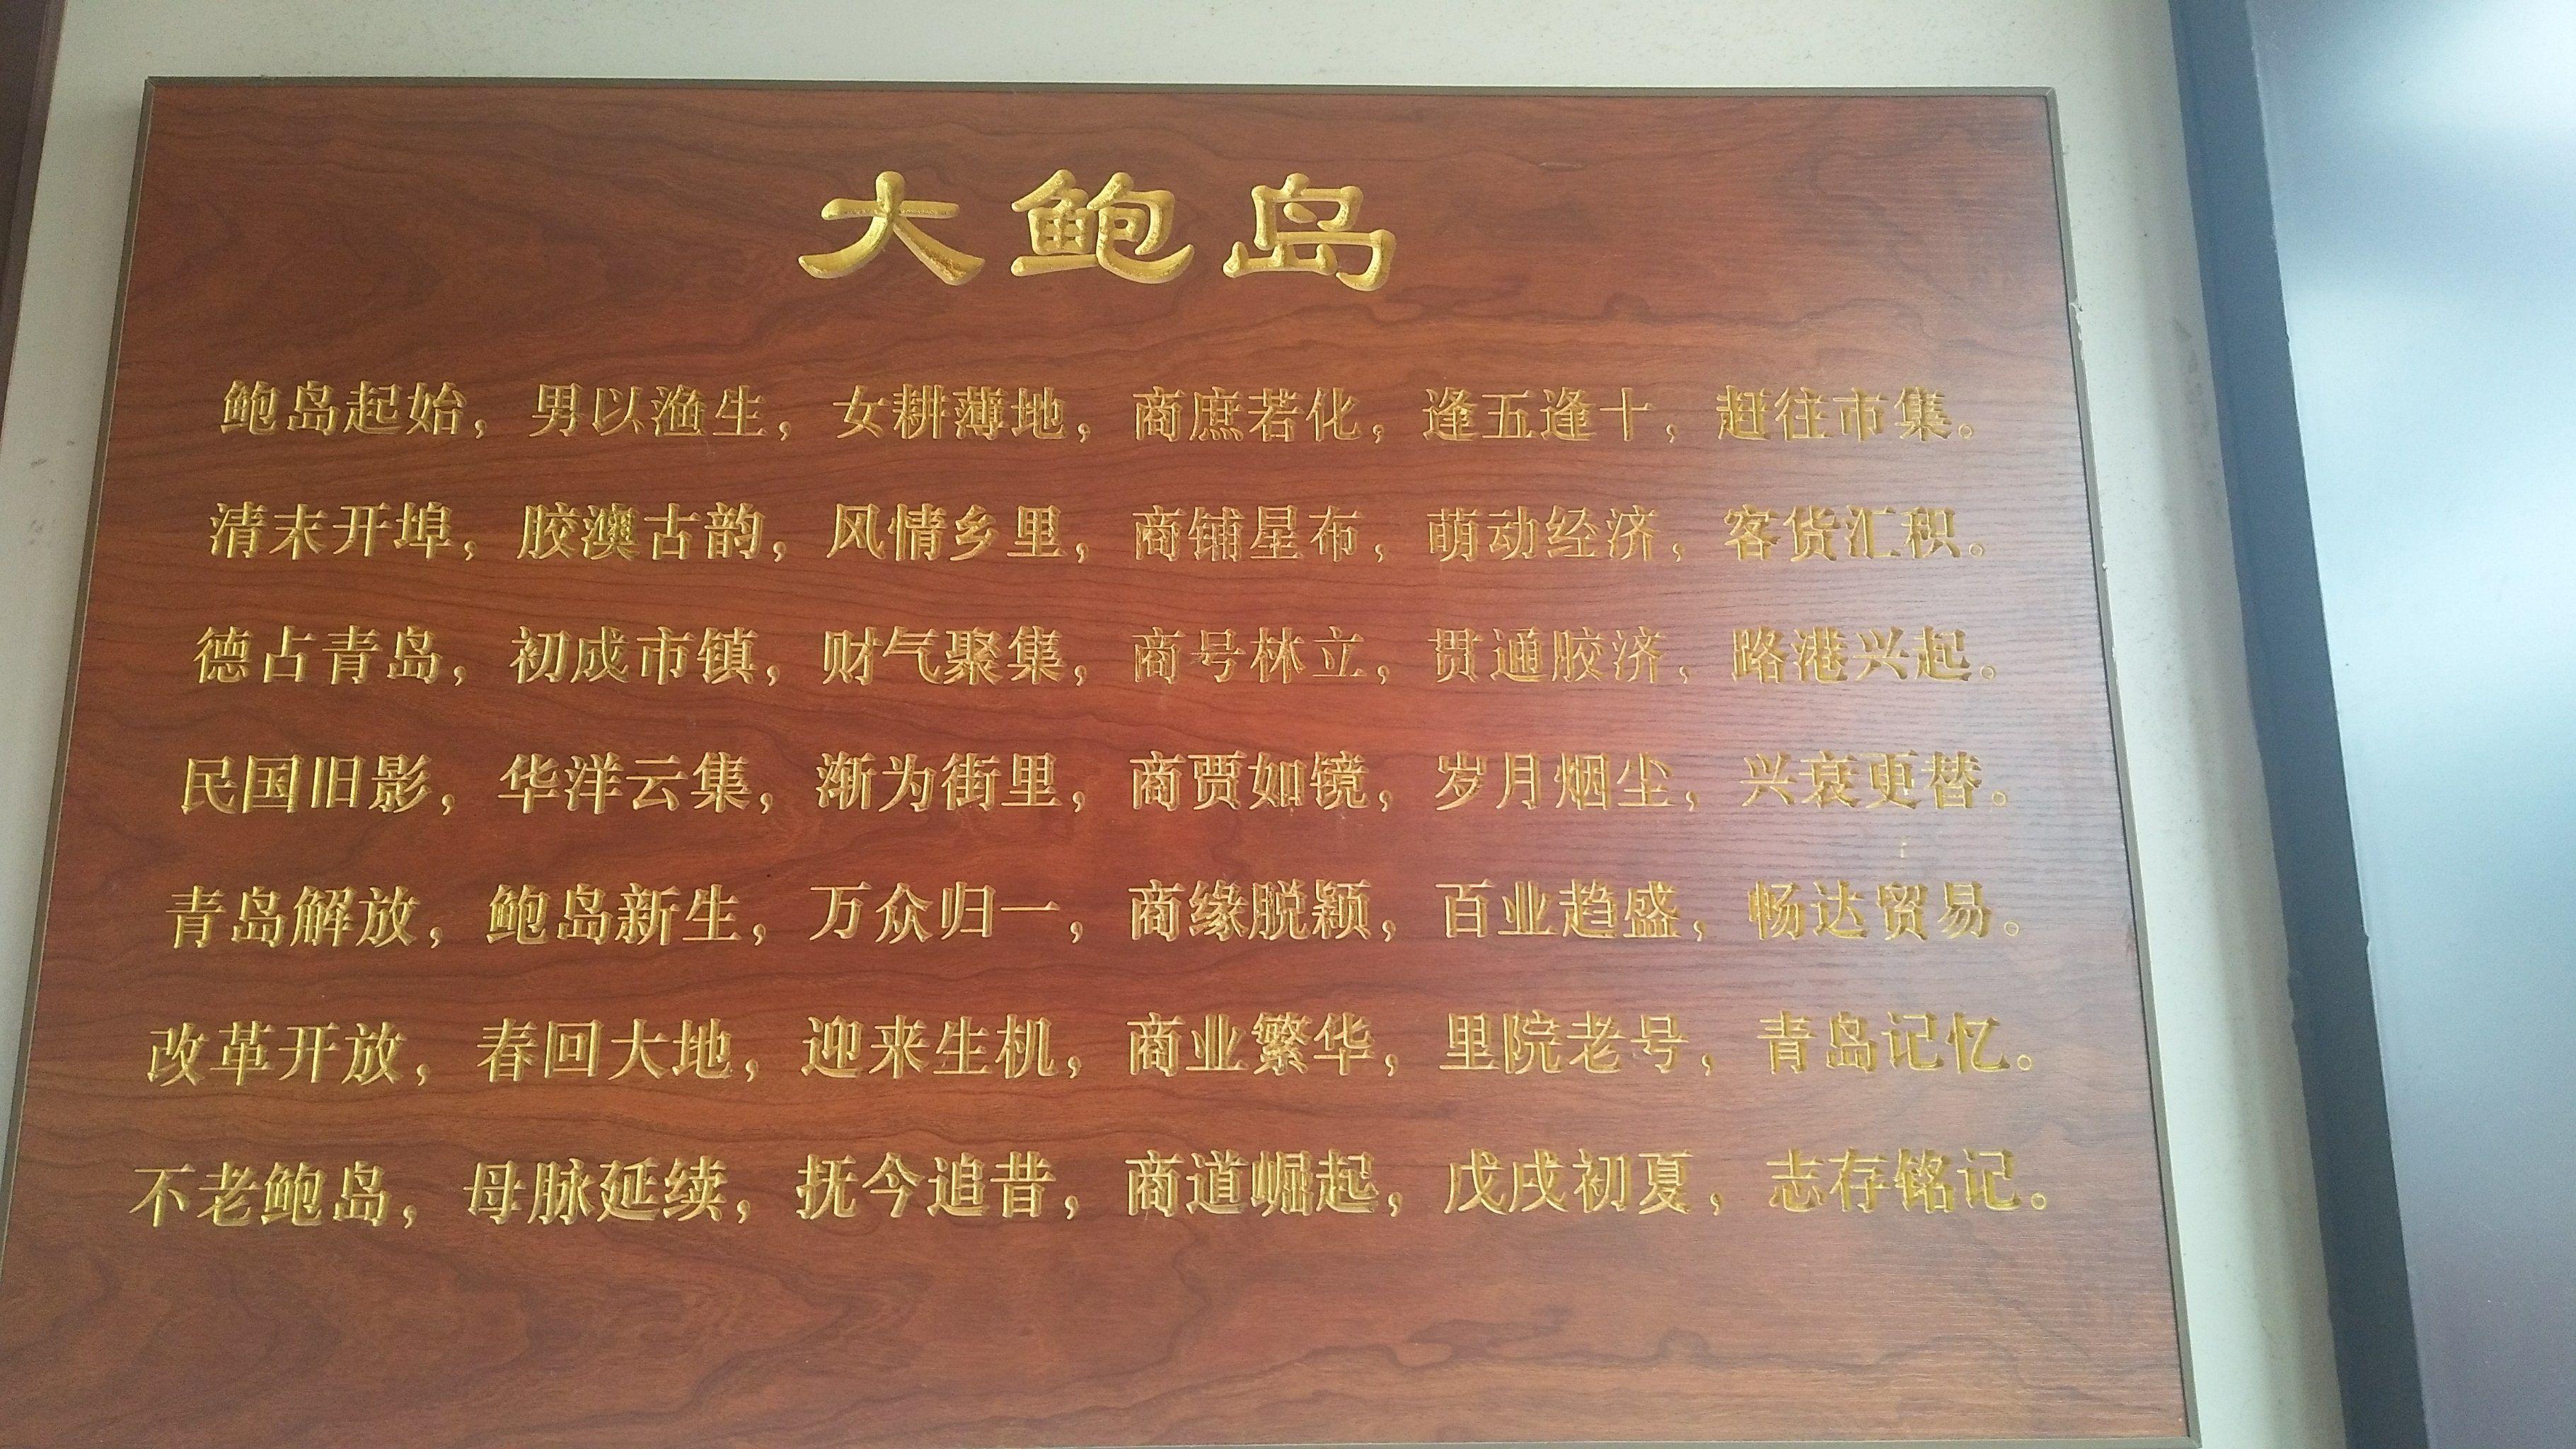 大鲍岛
鲍岛起始，男以渔生，女耕薄地，商庶若化，逢五逢十，赶往市集。
清末开埠，胶澳古韵，风情乡里，商铺星布，萌动经济，客货汇积。
德占青岛，初成市镇，财气聚集，商号林立，贯通胶济，路港兴起。
民国旧影，华洋云集，渐为街里，商贾如镜，岁月烟尘，兴衰更替。
青岛解放，鲍岛新生，万众归一，商缘脱颖，百业趋盛，畅达贸易。
改革开放，春回大地，迎来生机，商业繁华，里院老号，青岛记忆。
不老鲍岛，母脉延续，抚今追昔，商道崛起，戊戌初夏，志存铭记。